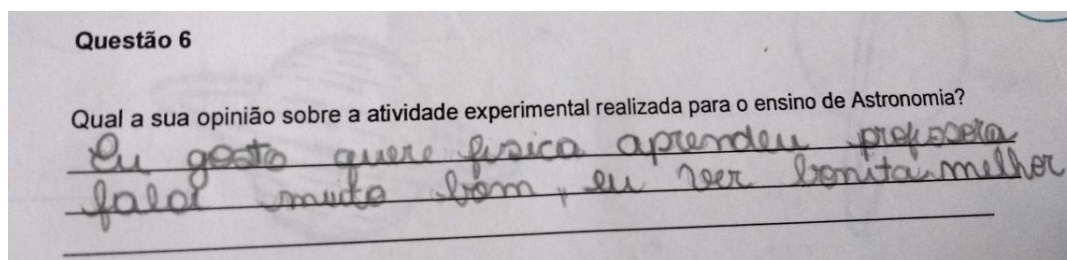 Questão 6
Qual a sua opinião sobre a atividade experimental realizada para o ensino de Astronomia?
Eu gosto quere fisica aprendeu professora
falol muito bom, eu ver bonita melhor